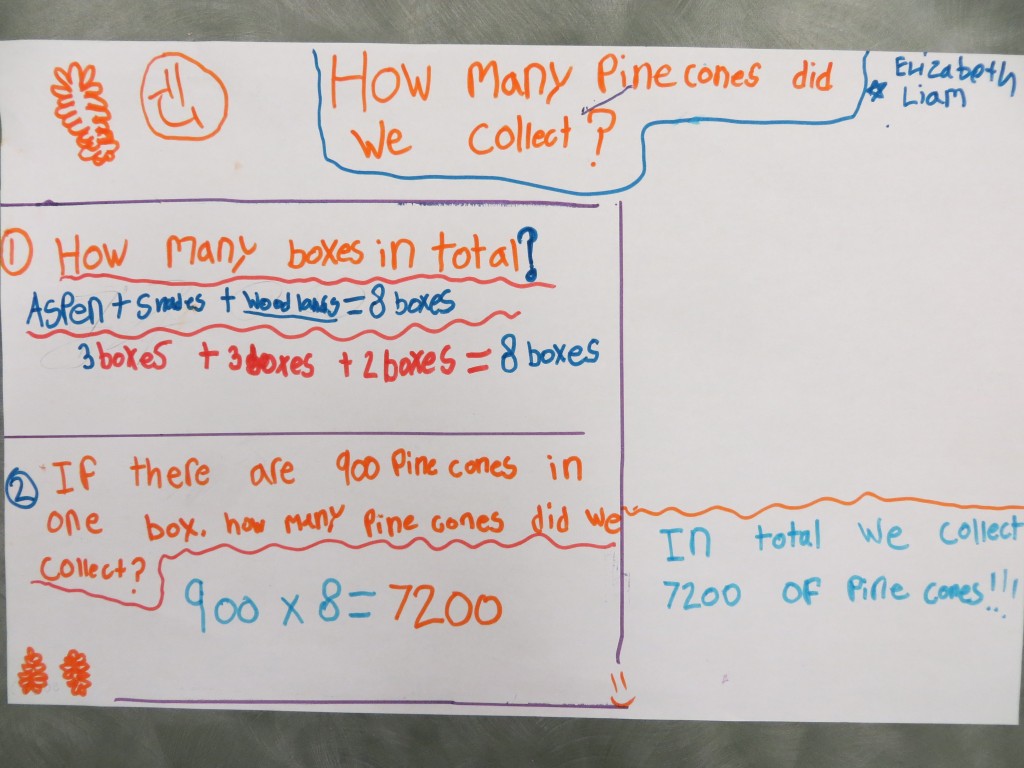 How Many Pine cones did
We Collect?
Elizabeth
Liam
1 How Many boxes in total?
Aspen + + Woodlands = 8 boxes
3 boxes + 3 boxes + 2 boxes = 8 boxes
2 If there are 900 Pine cones in
one box. how many Pine cones did we
collect?
900 x 8 = 7200
In total We collect
7200 OF Pine cones!!!